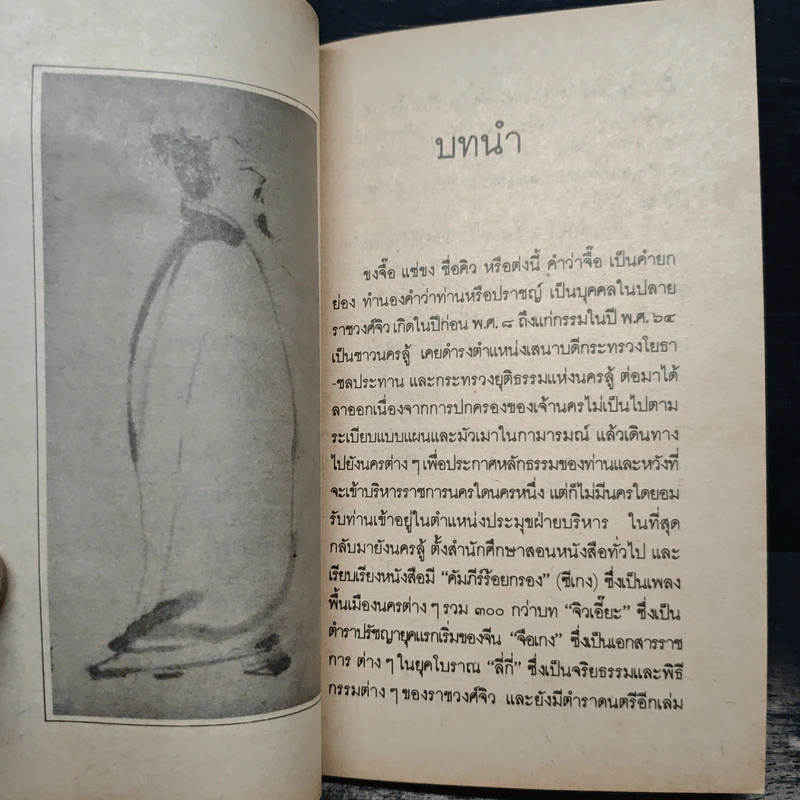 บทนำ
ขงจื๊อ แซ่ขง ชื่อคิว หรือต่งนี้ คำว่าจื๊อ เป็นคำยก
ย่อง ทำนองคำว่าท่านหรือปราชญ์ เป็นบุคคลในปลาย
ราชวงศ์จิว เกิดในปีก่อน พ.ศ. ๘ ถึงแก่กรรมในปี พ.ศ. ๖๔
เป็นชาวนครลู้ เคยดำรงตำแหน่งเสนาบดีกระทรวงโยธา
-ชลประทาน และกระทรวงยุติธรรมแห่งนครลู้ ต่อมาได้
ลาออกเนื่องจากการปกครองของเจ้านครไม่เป็นไปตาม
ระเบียบแบบแผนและมัวเมาในกามารมณ์ แล้วเดินทาง
ไปยังนครต่าง ๆ เพื่อประกาศหลักธรรมของท่านและหวังที่
จะเข้าบริหารราชการนครใดนครหนึ่ง แต่ก็ไม่มีนครใดยอม
รับท่านเข้าอยู่ในตำแหน่งประมุขฝ่ายบริหาร ในที่สุด
กลับมายังนครลู้ ตั้งสำนักศึกษาสอนหนังสือทั่วไป และ
เรียบเรียงหนังสือมี “คัมภีร์ร้อยกรอง” (ซีเกง) ซึ่งเป็นเพลง
พื้นเมืองนครต่าง ๆ รวม ๓๐๐ กว่าบท “จิวเอี๊ยะ” ซึ่งเป็น
ตำราปรัชญายุคแรกเริ่มของจีน “จือเกง” ซึ่งเป็นเอกสารราช
การ ต่าง ๆ ในยุคโบราณ “ลี่กี่” ซึ่งเป็นจริยธรรมและพิธี
กรรมต่าง ๆ ของราชวงศ์จิว และยังมีตำราดนตรีอีกเล่ม